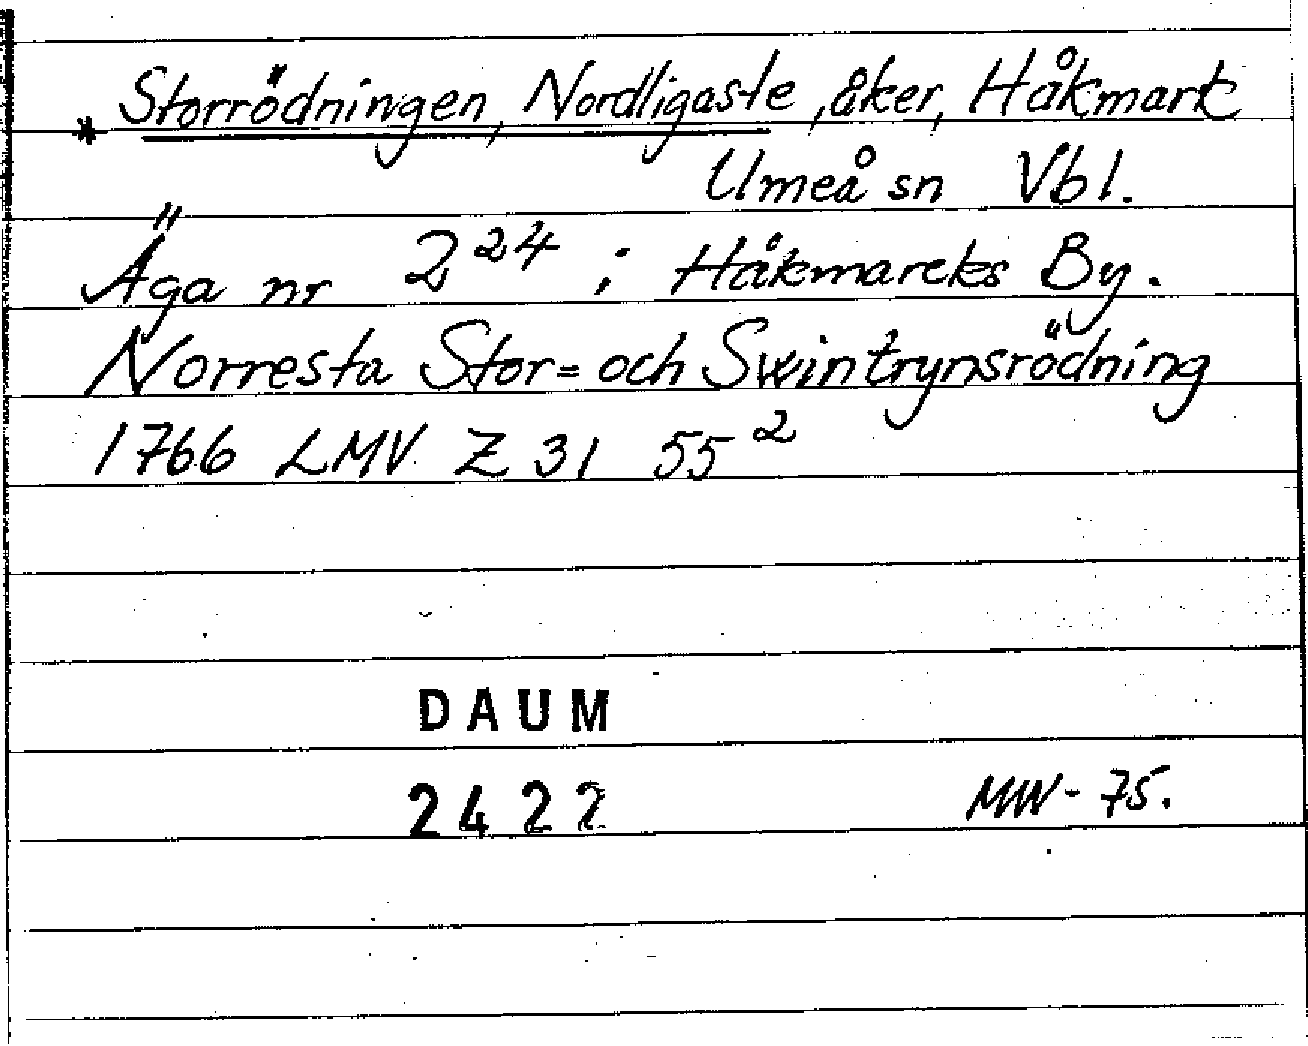 * Storrödningen, Nordligaste, åker, Håkmark
Umeå sn Vbl.
Äga nr 2²⁴ ; Håkmarcks By.
Norresta Stor= och Swintrynsrödning
1766 LMV Z 31 55²
DAUM
2422
MW-75.